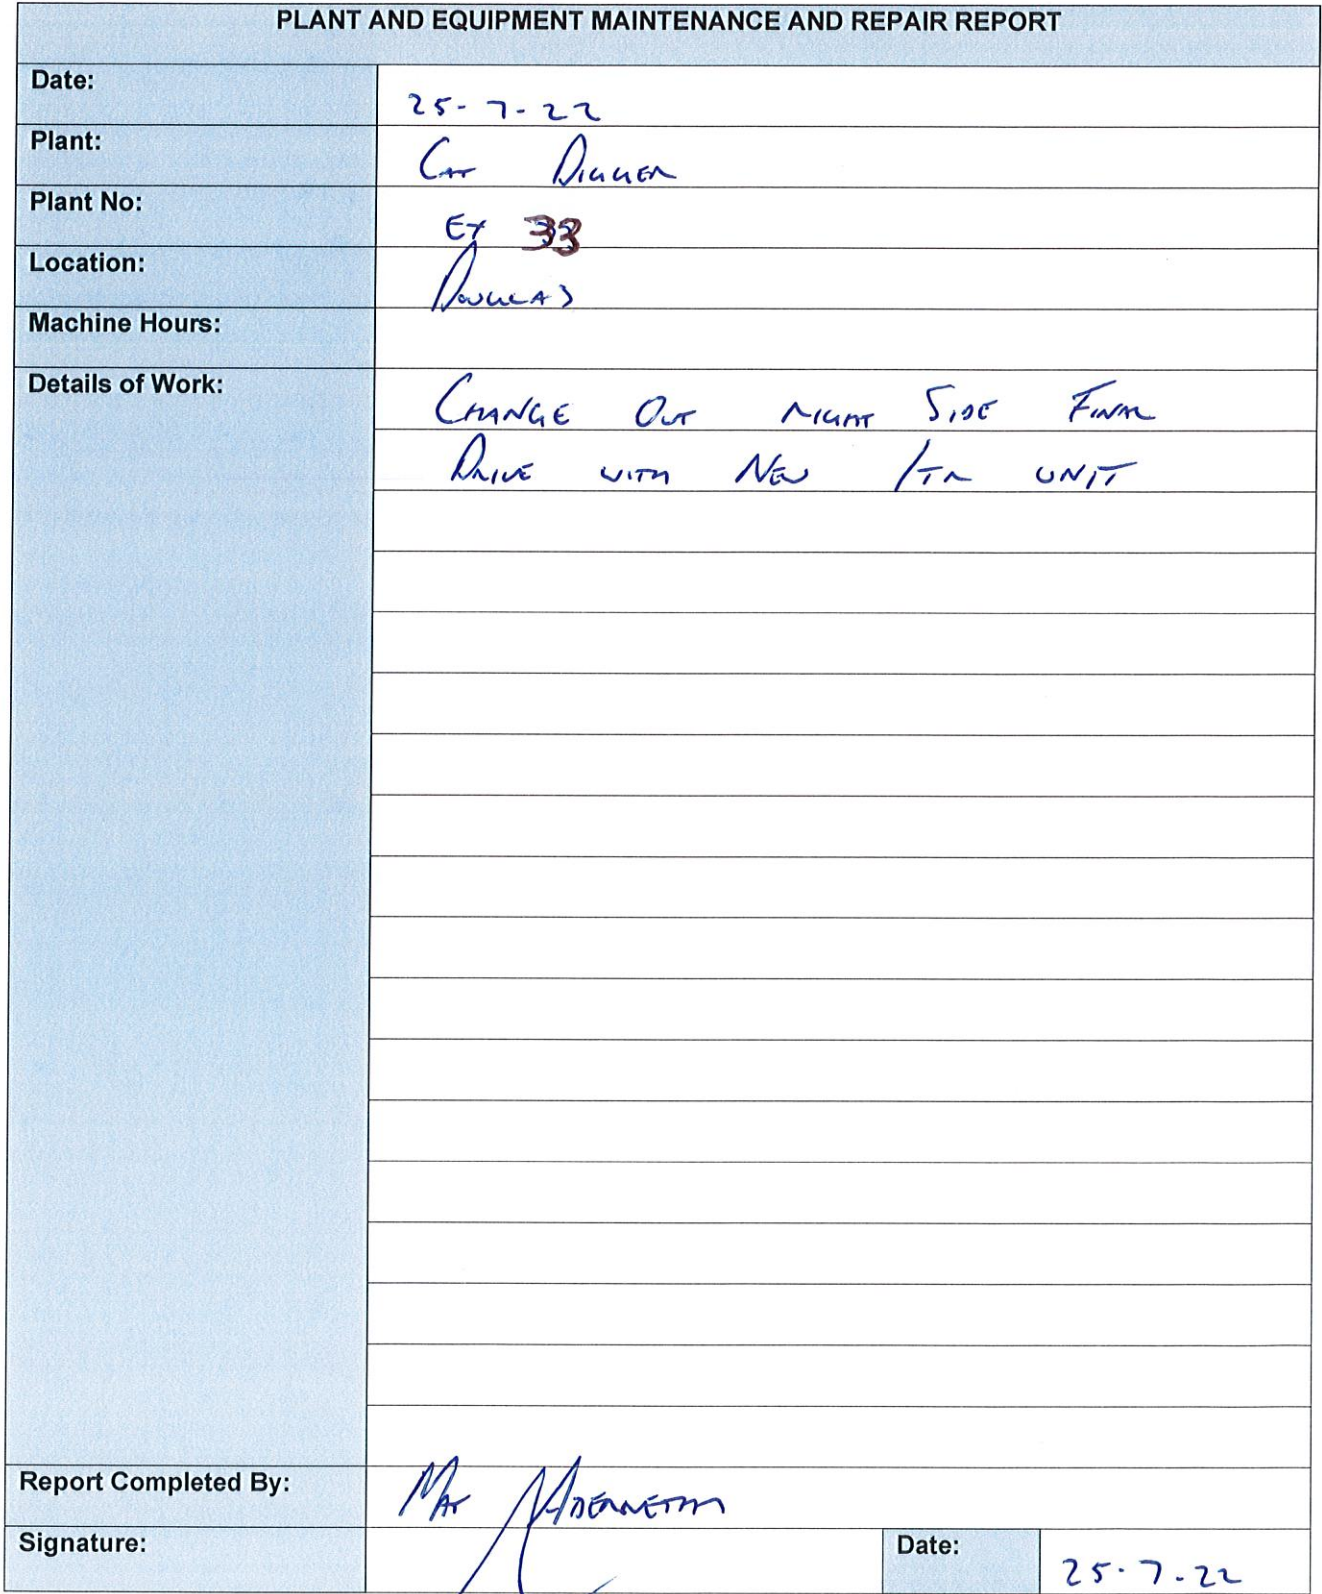 PLANT AND EQUIPMENT MAINTENANCE AND REPAIR REPORT
Date: 25-7-22
Plant: CAT DIGGER
Plant No: EX 33
Location: DOUGLAS
Machine Hours:
Details of Work: CHANGE OUT RIGHT SIDE FINAL
DRIVE WITH NEW ITR UNIT
Report Completed By: MAT ABERNETHY
Signature: Date: 25.7.22